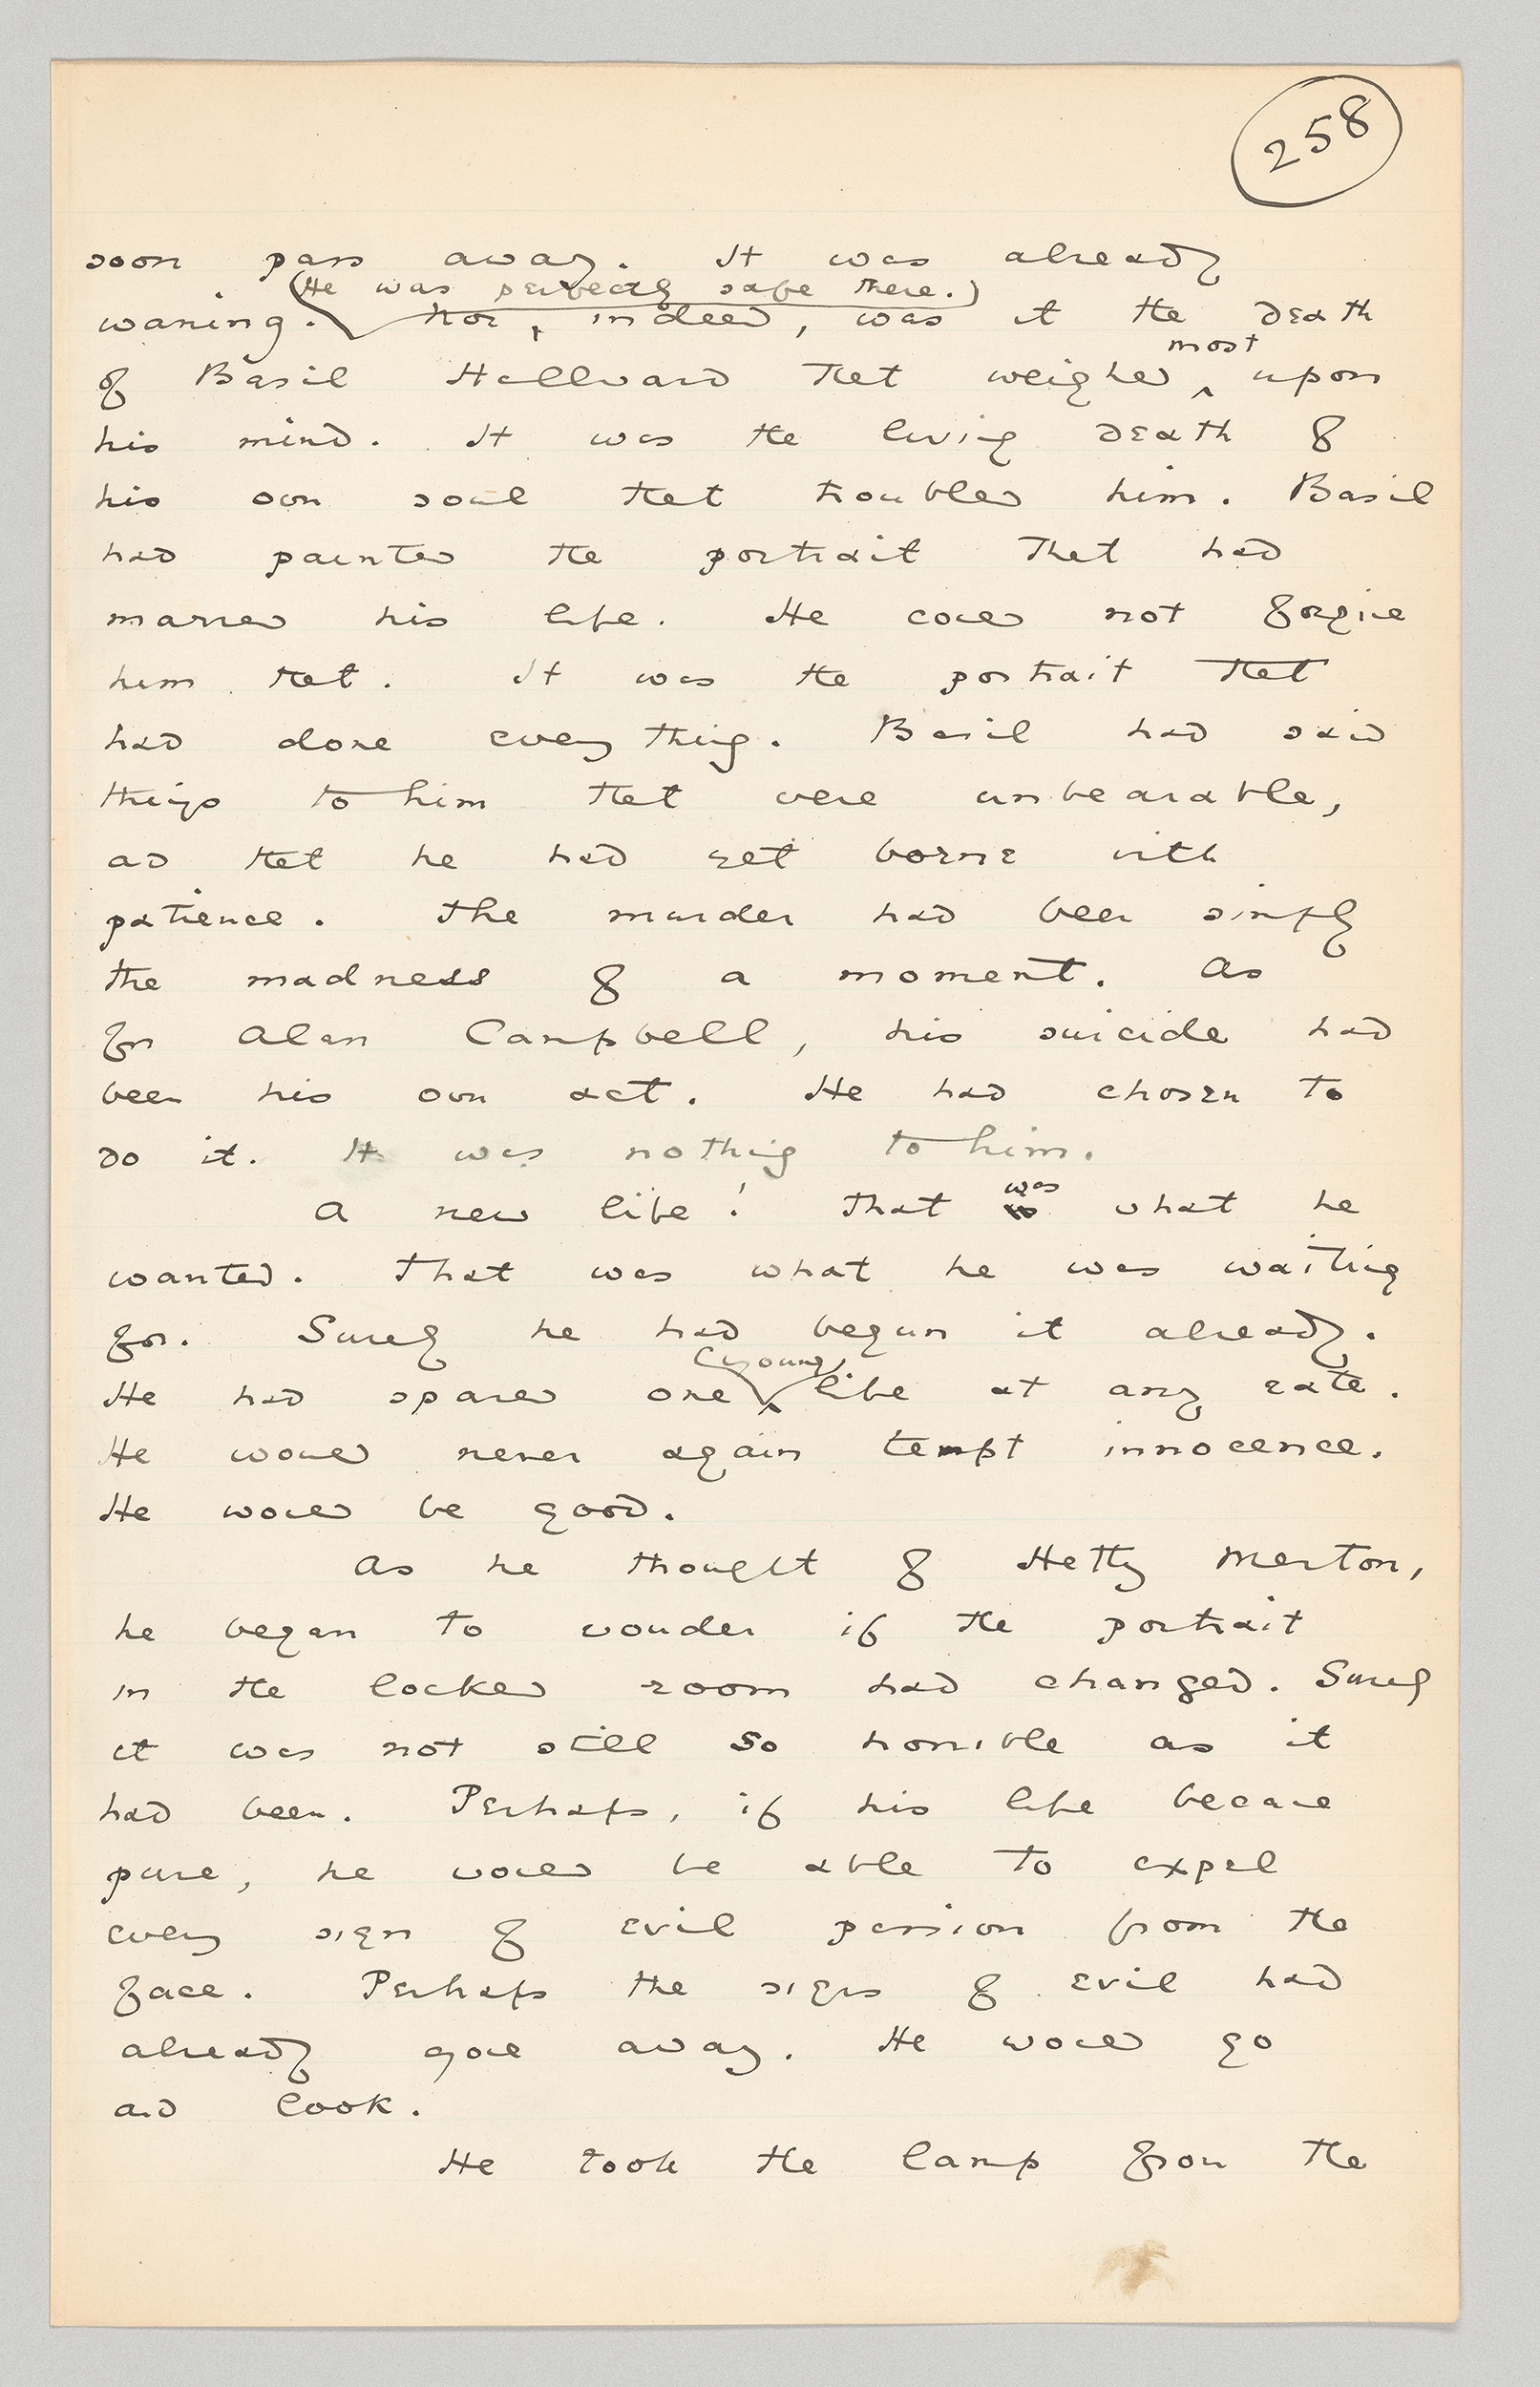 258
soon pass away. It was already
(He was perfectly safe there.)
waning. Nor, indeed, was it the death
most
of Basil Hallward that weighed upon
his mind. It was the living death of
his own soul that troubled him. Basil
had painted the portrait that had
marred his life. He could not forgive
him that. It was the portrait that
had done everything. Basil had said
things to him that were unbearable,
and that he had yet borne with
patience. The murder had been simply
the madness of a moment. As
for Alan Campbell, his suicide had
been his own act. He had chosen to
do it. It was nothing to him.
was
A new life! That is what he
wanted. That was what he was waiting
for. Surely he had begun it already.
(young)
He had spared one life at any rate.
He would never again tempt innocence.
He would be good.
As he thought of Hetty Merton,
he began to wonder if the portrait
in the locked room had changed. Surely
it was not still so horrible as it
had been. Perhaps, if his life became
pure, he would be able to expel
every sign of evil passion from the
face. Perhaps the signs of evil had
already gone away. He would go
and look.
He took the lamp from the